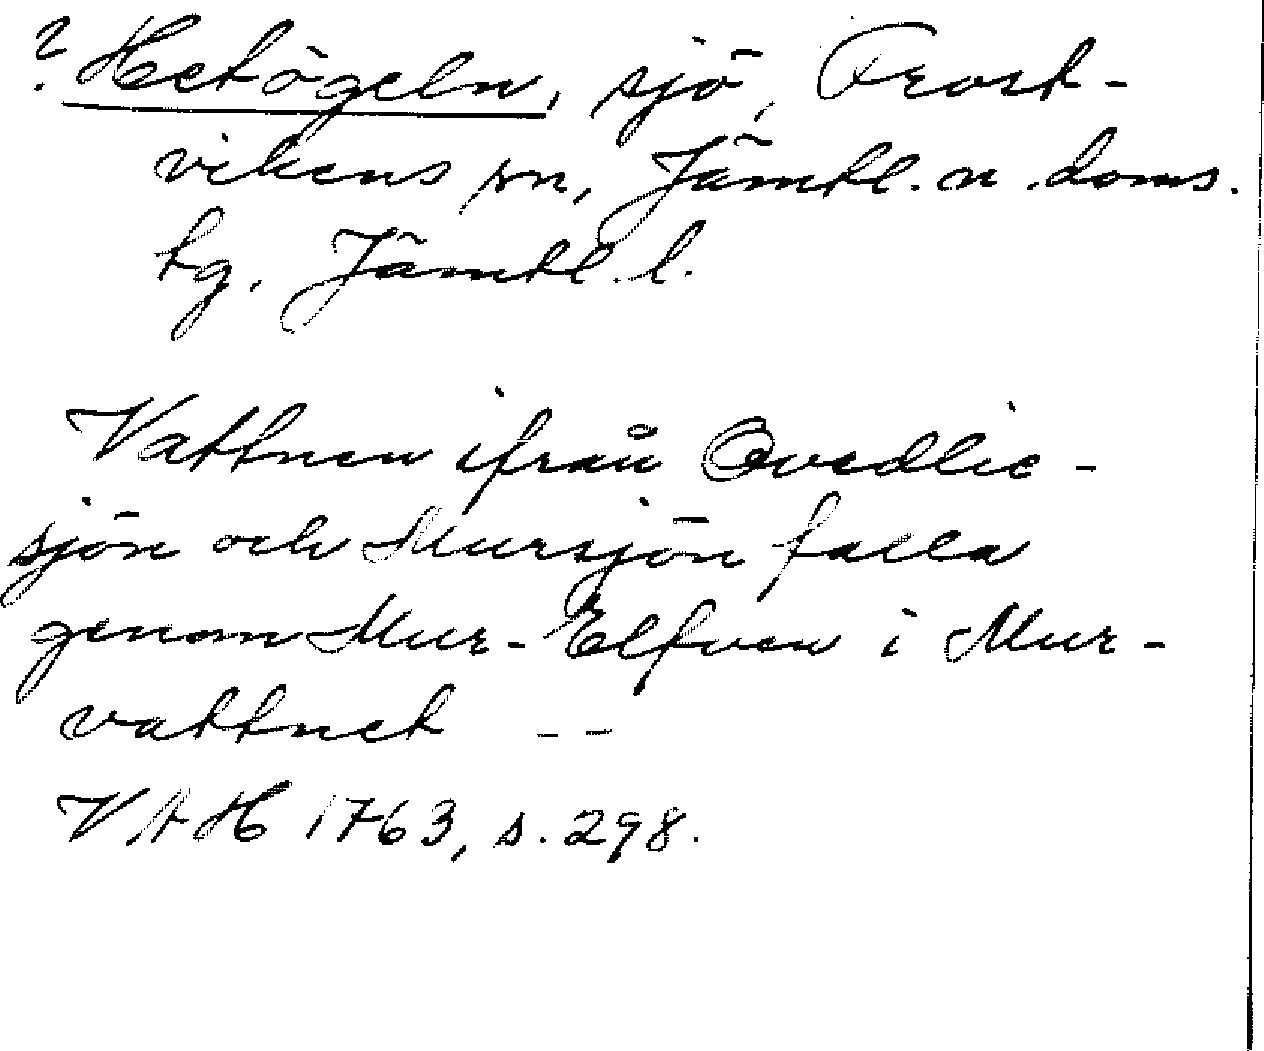 ? Hetögeln, sjö, Frost-
vikens sn, Jämtl. n. doms.
tg. Jämtl. l.
Vattnen ifrån Qvedlie-
sjön och Mursjön falla
genom Mur-Elfven i Mur-
vattnet --
VAH 1763, s. 298.